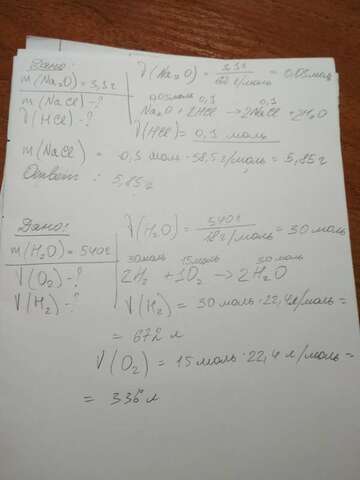 Дано:
m(Na₂O)=3,1г
m(NaCl)-?
V(HCl)-?
V(Na₂O)=3,1г/62г/моль=0,05моль
0,05моль 0,1 0,1
Na₂O+2HCl→2NaCl+2H₂O
V(HCl)=0,1 моль
m(NaCl)=0,1 моль·58,5г/моль=5,85г
Ответ: 5,85г
Дано:
m(H₂O)=540г
V(O₂)-?
V(H₂)-?
V(H₂O)=540г/18г/моль=30моль
30моль 15моль 30 моль
2H₂+1O₂→2H₂O
V(H₂)=30 моль·22,4л/моль=
=672 л
V(O₂)=15моль·22,4 л/моль=
=336л